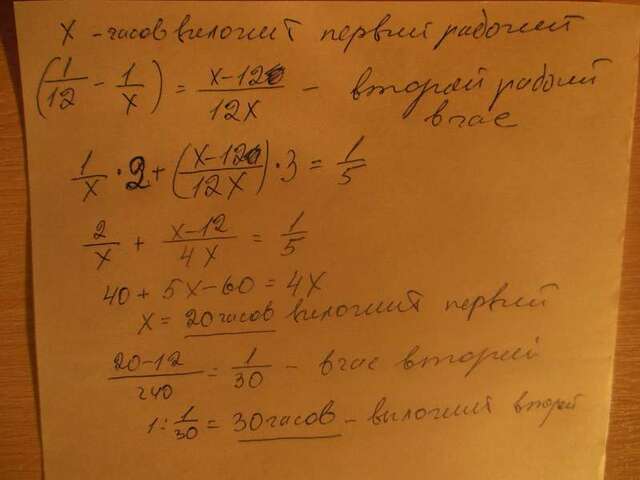 x - часов выложит первый рабочий
(1/12 - 1/x) = x-12/12x - второй рабочий
в час
1/x · 2 + (x-12/12x) · 3 = 1/5
2/x + x-12/4x = 1/5
40 + 5x - 60 = 4x
x = 20 часов выложит первый
20-12/240 = 1/30 - в час второй
1 : 1/30 = 30 часов - выложит второй